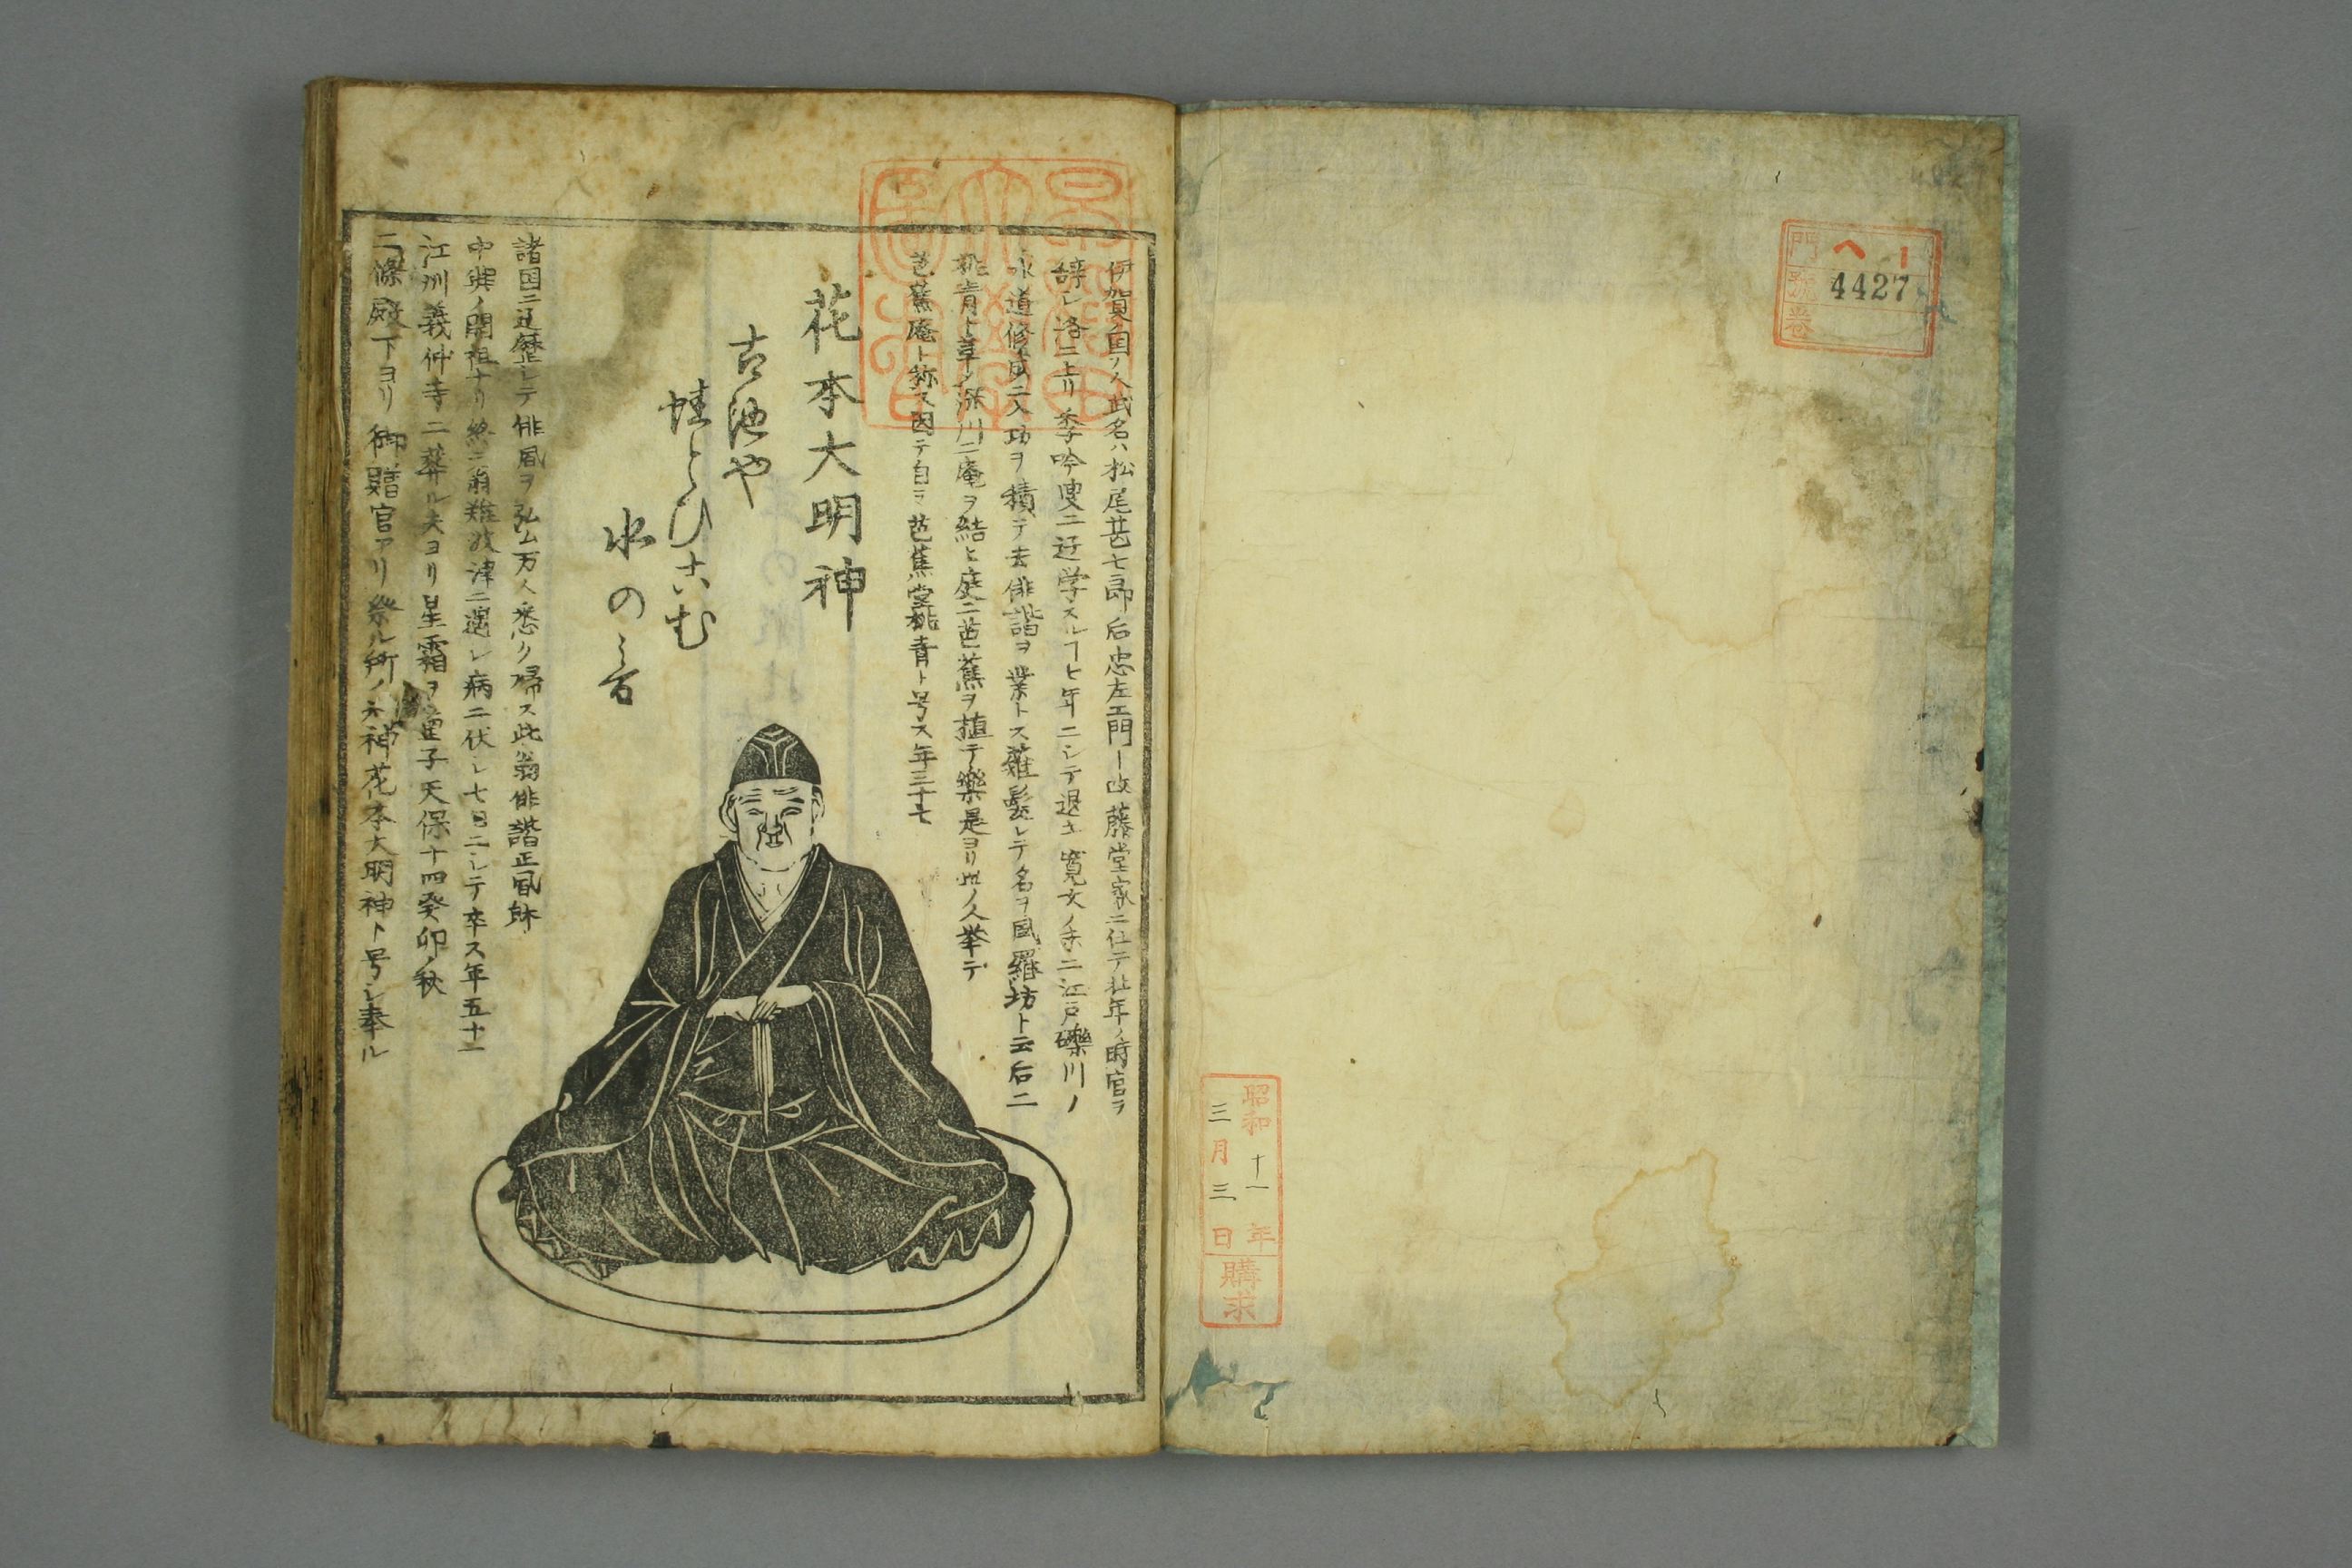 門 へ 1
號 4427
卷
昭和十一年
三月三日
購求
伊賀国ノ人武名ハ松尾甚七郎后忠左エ門ト改藤堂家ニ仕テ壮年ノ時官ヲ
辞シ洛ニ上リ季吟叟ニ遊学スル ヒ年ニシテ退去寛文ノ末ニ江戸礫川ノ
水道修成ニ入功ヲ積テ去俳諧ヲ業トス薙髪シテ名ヲ風羅坊ト云后ニ
桃青ト 深川ニ庵ヲ結ヒ庭ニ芭蕉ヲ植テ樂是ヨリ世ノ人挙テ
芭蕉庵ト称ス因テ自ヲ芭蕉堂桃青ト号ス年三十七
花本大明神
古池や
蛙とひこむ
水の音
諸国ニ遊歴シテ俳風ヲ弘ム万人悉ク帰ス此翁俳諧正風躰
中興ノ開祖ナリ終ニ翁難波津ニ遇シ病ニ伏シ七日ニシテ卒ス年五十一
江州義仲寺ニ葬ル夫ヨリ星霜ヲ重子天保十四癸卯ノ秋
二條殿下ヨリ御贈官アリ祭ル所ノ 神花本大明神ト号シ奉ル